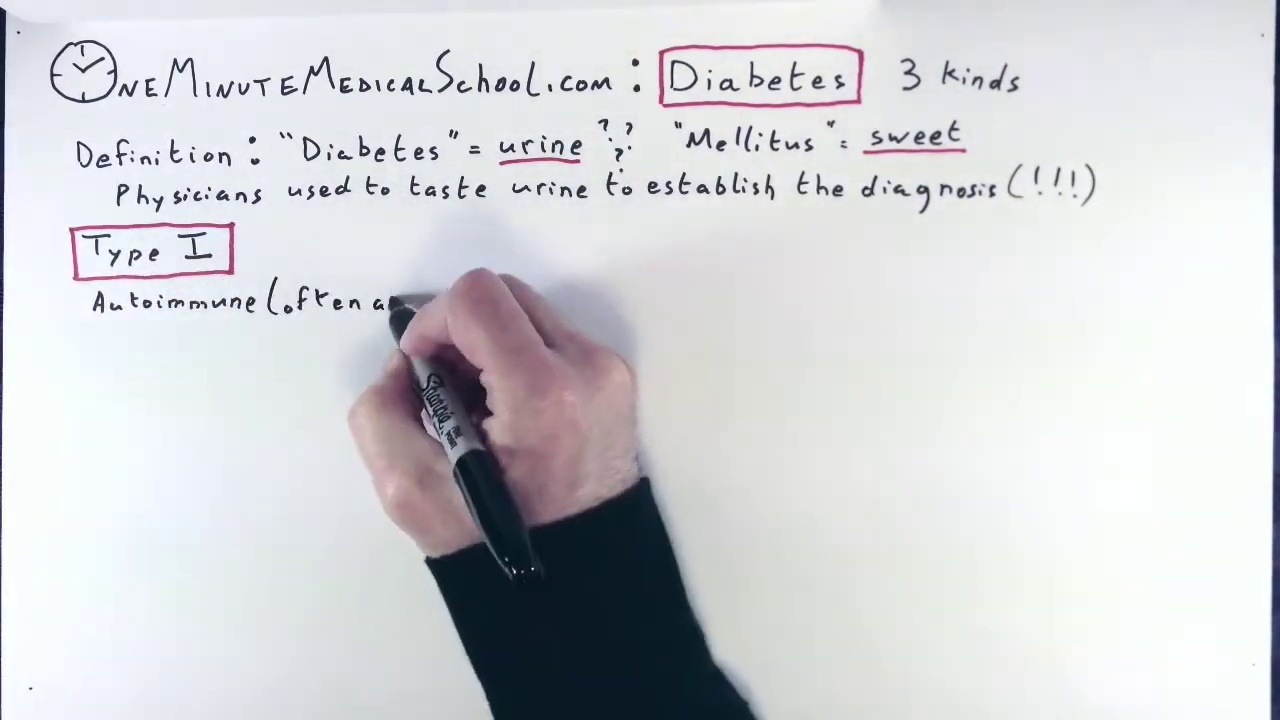 OneMinuteMedicalSchool.com : Diabetes 3 kinds
Definition : "Diabetes" = urine ??? "Mellitus" = sweet
Physicians used to taste urine to establish the diagnosis (!!!)
Type I
Autoimmune (often a
Sharpie